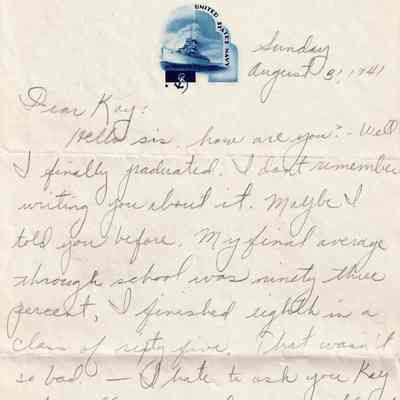 UNITED STATES NAVY
Sunday
August 3, 1941
Dear Kay:
Hello sis, how are you? - Well
I finally graduated. I dont remember
writing you about it. Maybe I
told you before. My final average
through school was ninety three
percent, I finished eighth in a
class of sixty five. That wasn't
so bad — I hate to ask you Kay